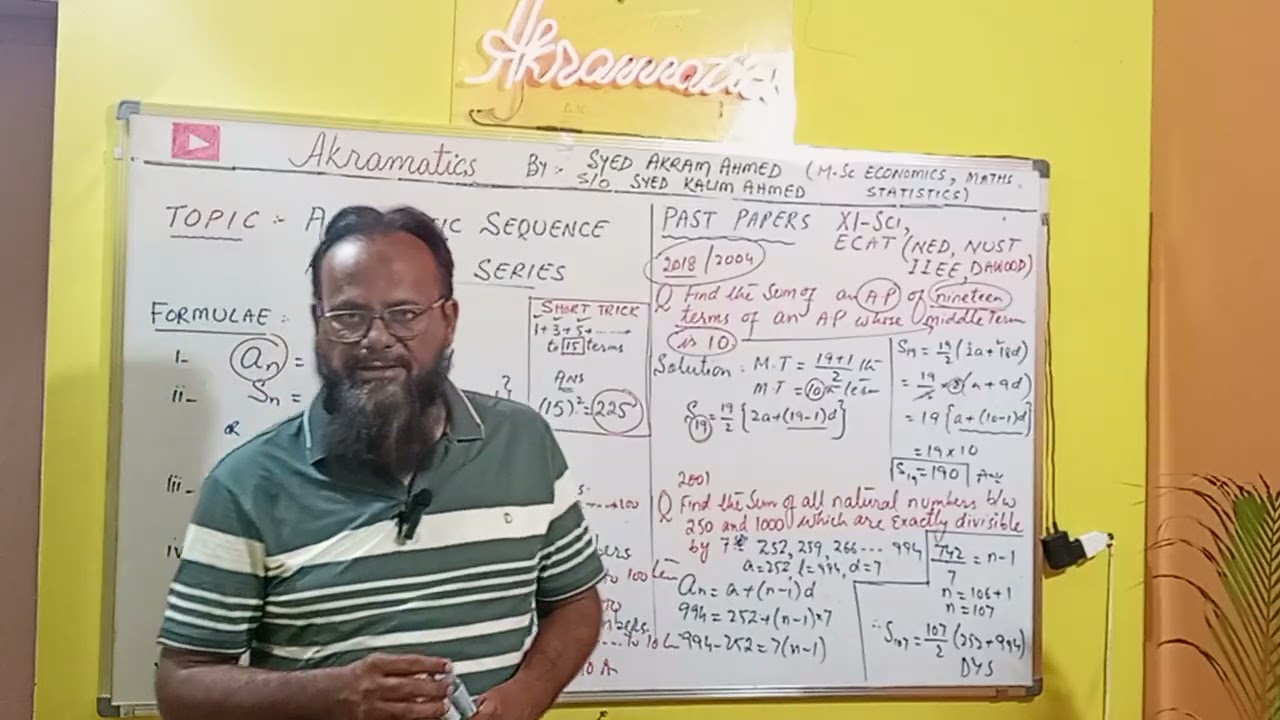 Akramatics
Akramatics BY:- SYED AKRAM AHMED (M.Sc ECONOMICS, MATHS,
S/O SYED KALIM AHMED STATISTICS)
TOPIC:- A IC SEQUENCE
SERIES
FORMULAE:
i- an =
ii- Sn =
OR
iii-
iv
SHORT TRICK
1+3+5+......
to 15 terms
Ans
(15)²=225
100
bers
to 100
mbers.
PAST PAPERS XI-SCI,
ECAT (NED, NUST
IIEE, DAWOOD)
2018/2004
Q Find the Sum of an AP of nineteen
terms of an AP whose middle Term
is 10
Solution: M.T = 19+1/2 th
M.T = 10
S19 = 19/2 {2a+(19-1)d}
S19 = 19/2 (2a+18d)
= 19/2 × 2(a+9d)
= 19{a+(10-1)d}
= 19×10
S19 = 190 Ans
2001
Q Find the Sum of all natural numbers b/w
250 and 1000 which are Exactly divisible
by 7 252, 259, 266 ... 994
a=252 l=994, d=7
an = a+(n-1)d
994 = 252+(n-1)×7
994-252 = 7(n-1)
742/7 = n-1
n = 106+1
n = 107
∴ S107 = 107/2 (252+994)
DYS